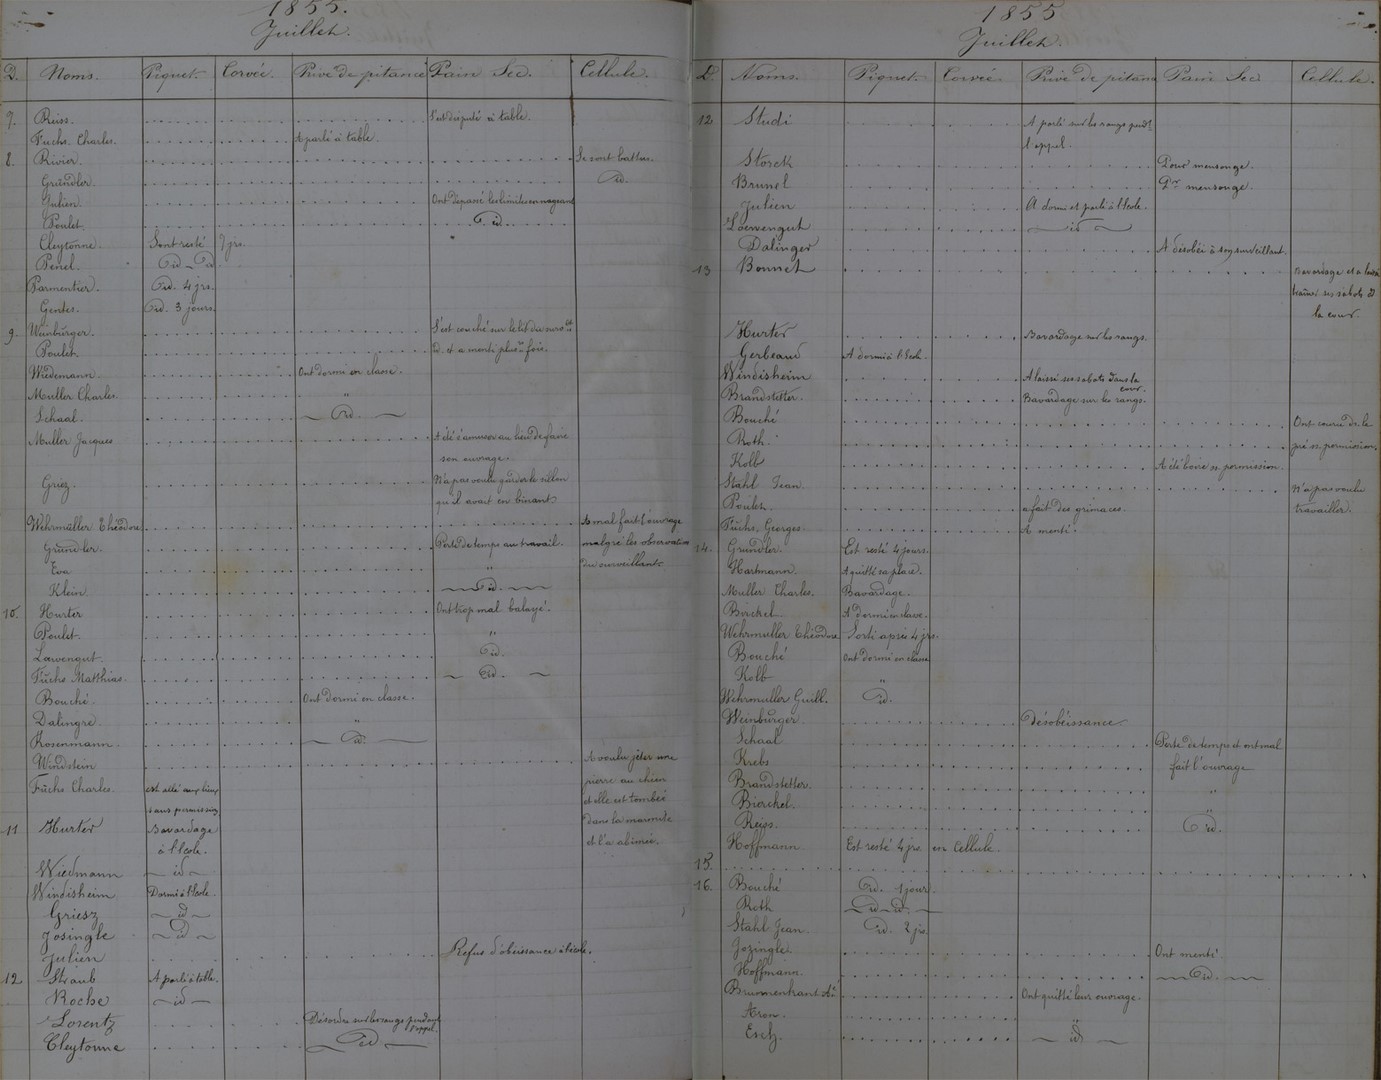 1855.
Juillet.
D. Noms. Piquet. Corvée. Privé de pitance Pain Sec. Cellule.
7. Reiss. S'est disputé à table.
Fuchs Charles. A parlé à table.
8. Rivier. Se sont battus.
Gründler. Id.
Julien. Ont dépassé les limites en nageant
Poulet. id.
Cleytonne. Sont resté 7 jrs.
Penel. Id. Id.
Parmentier. Id. 4 jrs.
Gentes. Id. 3 jours.
9. Weinburger. S'est couché sur le lit du
Poulet. id. et a menti plusrs fois.
Wiedemann. Ont dormi en classe.
Muller Charles. "
Schaal. Id.
Muller Jacques A été s'amuser au lieu de faire
son ouvrage.
Griez. N'a pas voulu garder le sillon
qu'il avait en binant
Wehrmüller Théodore. A mal fait l'ouvrage
Gründler. Perte de temps au travail. malgré les observations
Eva " du surveillant
Klein. id.
10. Hurter Ont trop mal balayé.
Poulet. "
Lawengut. id.
Fuchs Matthias. id.
Bouché. Ont dormi en classe.
Dalingre. "
Rosenmann. id.
Windstein A voulu jeter une
Fuchs Charles. est allé aux lieux pierre au chien
sans permission et elle est tombée
11 Hurter Bavardage dans la marmite
à l'école. et l'a abimée.
Wiedmann id
Windisheim Dormi à l'école
Griesz id
Josingle id
Julien Refus d'obéissance à l'école.
12 Straub A parlé à table.
Roche id
Lorentz Désordre sur les rangs pendant
l'appel
Cleytonne id
1855
Juillet.
D. Noms. Piquet. Corvée Privé de pitance Pain Sec Cellule.
12 Studi A parlé sur les rangs pendt
l'appel.
Storck Pour mensonge.
Brunel Pr mensonge.
Julien A dormi et parlé à l'école.
Loewengut id
Dalinger A désobéi à son surveillant.
13 Bonnet Bavardage et a laissé
traîner ses sabots ds
la cour.
Hurter Bavardage sur les rangs.
Gerbeaud A dormi à l'école.
Windisheim A laissé ses sabots dans la
cour.
Brandstetter. Bavardage sur les rangs.
Bouché Ont couru ds le
Roth. pré ss permission.
Kolb A été boire ss permission.
Stahl Jean. N'a pas voulu
Poulet. a fait des grimaces. travailler.
Fuchs Georges. A menti.
14. Gründler. Est resté 4 jours.
Hartmann. A quitté sa place.
Muller Charles. Bavardage.
Birckel. A dormi en classe.
Wehrmuller Théodore Sorti après 4 jrs.
Bouché Ont dormi en classe
Kolb "
Wehrmuller Guill. id.
Weinburger Désobéissance.
Schaal Perte de temps et ont mal
Krebs fait l'ouvrage
Brandstetter. "
Bierckel. "
Reiss. id.
Hoffmann Est resté 4 jrs. en Cellule.
15.
16. Bouché Id. 1 jour.
Roth id id.
Stahl Jean. id. 2 jrs.
Jozingle Ont menti
Hoffmann Id.
Ont quitté leur ouvrage.
Aron. "
Esch. id